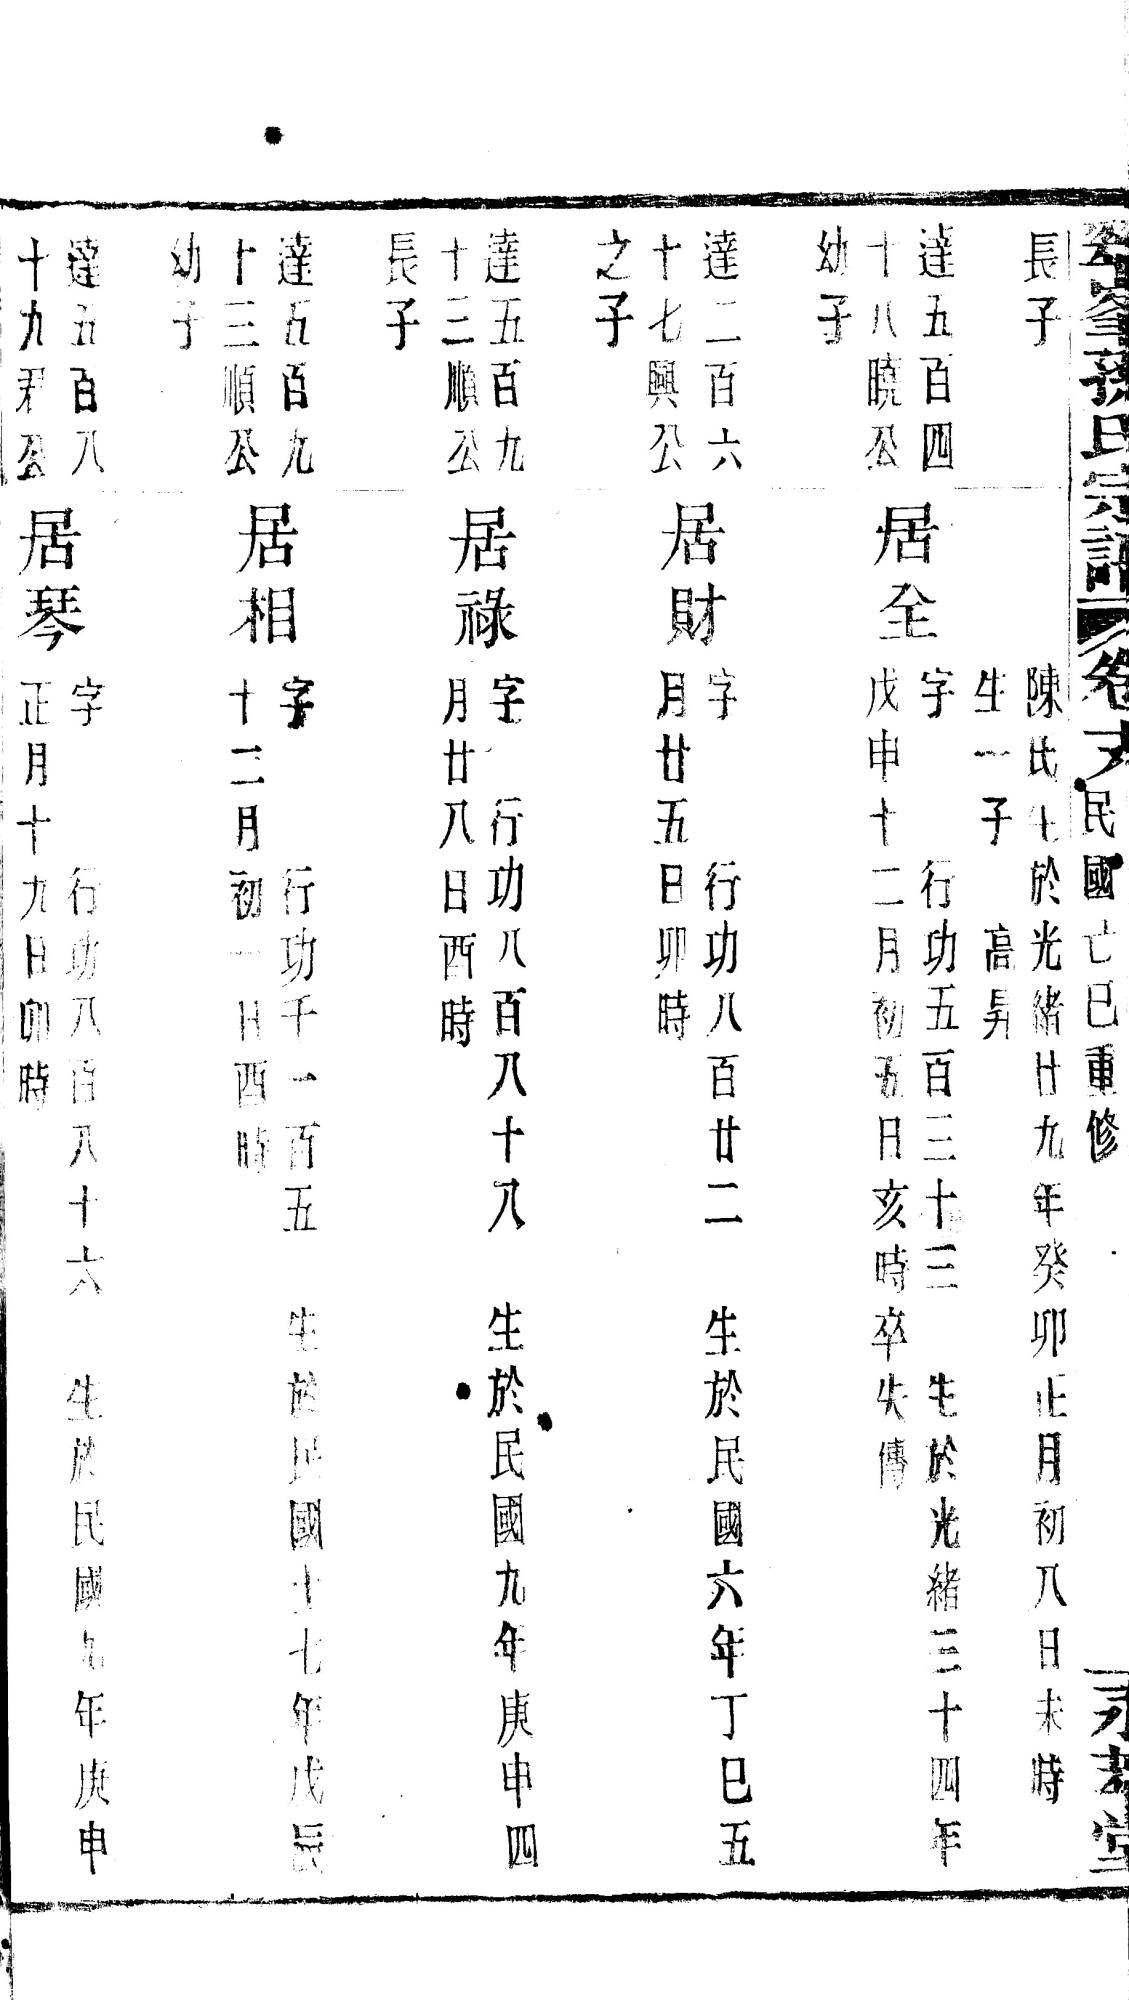 孫氏宗譜 卷 民國亡巳重修 堂
長子
陳氏生於光緒廿九年癸卯正月初八日未時
生一子 高昇
達五百四
十八曉公
幼子
居全
字 行功五百三十三 生於光緒三十四年
戊申十二月初五日亥時卒失傳
達二百六
十七興公
之子
居財
字 行功八百廿二 生於民國六年丁巳五
月廿五日卯時
達五百九
十三順公
長子
居祿
字 行功八百八十八 生於民國九年庚申四
月廿八日酉時
達五百九
十三順公
幼子
居相
字 行功千一百五 生於民國十七年戊辰
十二月初一日酉時
達五百八
十九君公
居琴
字 行功八百八十六 生於民國九年庚申
正月十九日卯時